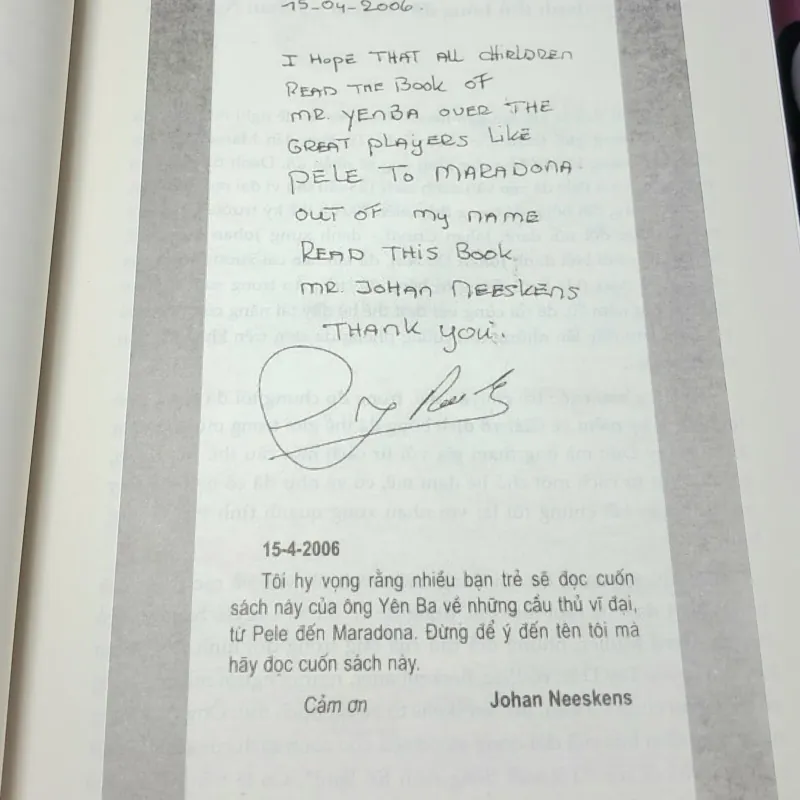 15-04-2006.
I HOPE THAT ALL CHIRLDREN
READ THE BOOK OF
MR. YENBA OVER THE
GREAT PLAYERS LIKE
PELE TO MARADONA.
OUT OF MY NAME
READ THIS BOOK
MR. JOHAN NEESKENS
THANK YOU.
15-4-2006
Tôi hy vọng rằng nhiều bạn trẻ sẽ đọc cuốn
sách này của ông Yên Ba về những cầu thủ vĩ đại,
từ Pele đến Maradona. Đừng để ý đến tên tôi mà
hãy đọc cuốn sách này.
Cảm ơn Johan Neeskens